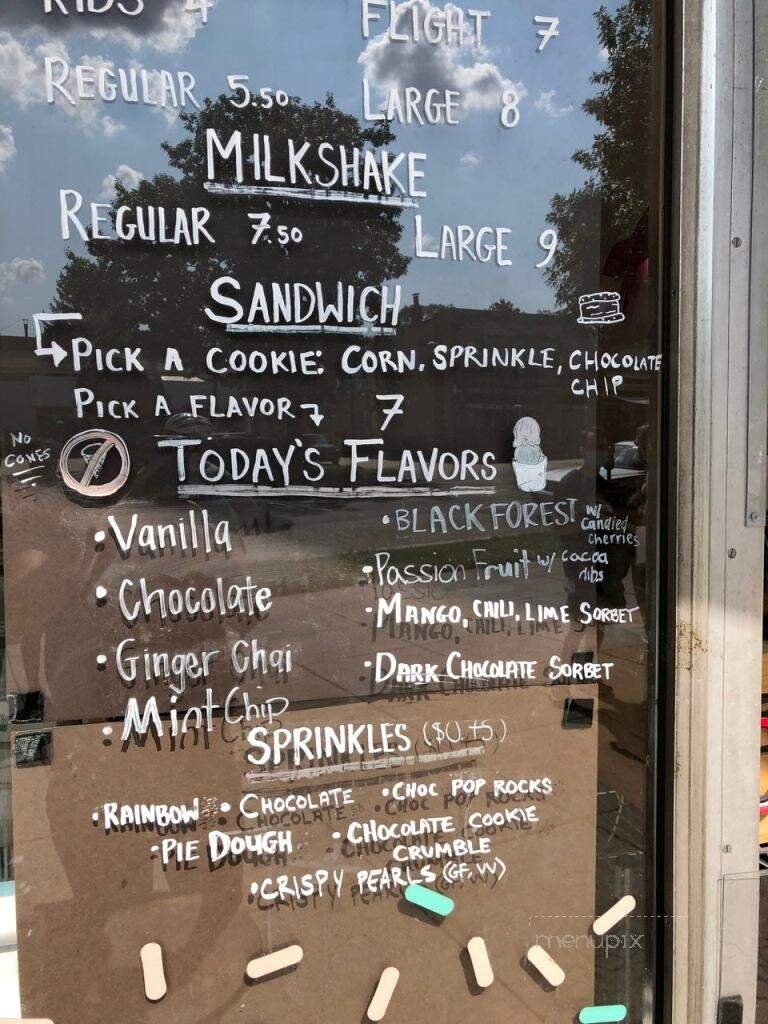 KIDS 4 FLIGHT 7
REGULAR 5.50 LARGE 8
MILKSHAKE
REGULAR 7.50 LARGE 9
SANDWICH
PICK A COOKIE: CORN, SPRINKLE, CHOCOLATE
CHIP
PICK A FLAVOR 7
NO
CONES
TODAY'S FLAVORS
• Vanilla
• Chocolate
• Ginger Chai
• Mint Chip
• BLACK FOREST w/
Candied
Cherries
• Passion Fruit w/ cacao
nibs
• MANGO, CHILI, LIME SORBET
• DARK CHOCOLATE SORBET
SPRINKLES ($0.75)
• RAINBOW • CHOCOLATE • CHOC POP ROCKS
• PIE DOUGH • CHOCOLATE COOKIE
CRUMBLE
• CRISPY PEARLS (GF, VV)
menupix